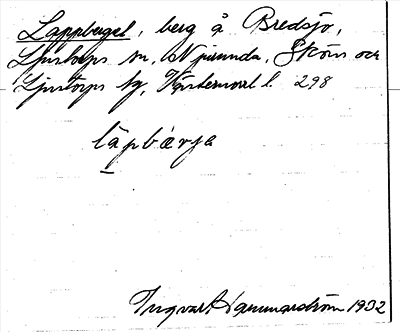 Lappberget, berg å Bredsjö,
Ljustorps sn, Njurunda, Sköns och
Ljustorps tg, Västernorrl l. 298
lápbæ̀rja
Ingvar Hammarström 1932